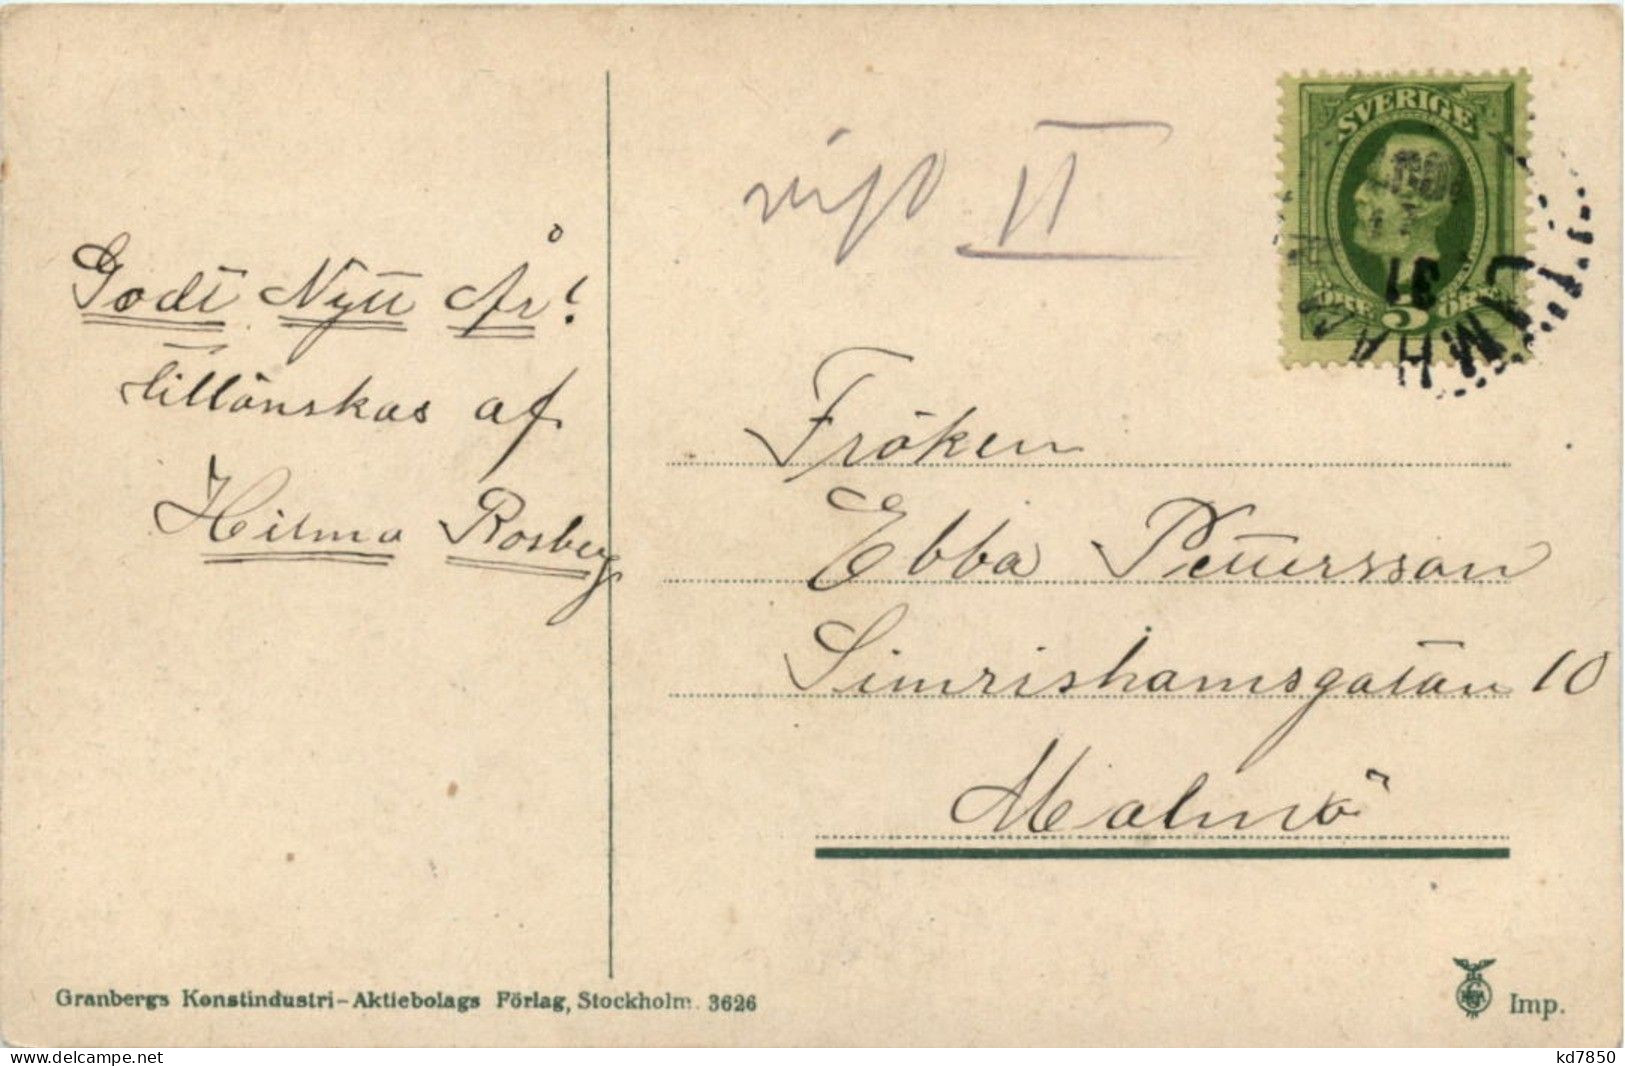 Godt Nytt År!
tillönskas af
Hilma Rosberg
II
SVERIGE
ÖRE 5 ÖRE
31
Fröken
Ebba Pettersson
Simrishamsgatan 10
Malmö
Granbergs Konstindustri-Aktiebolags Förlag, Stockholm. 3626
Imp.
kd7850
www.delcampe.net